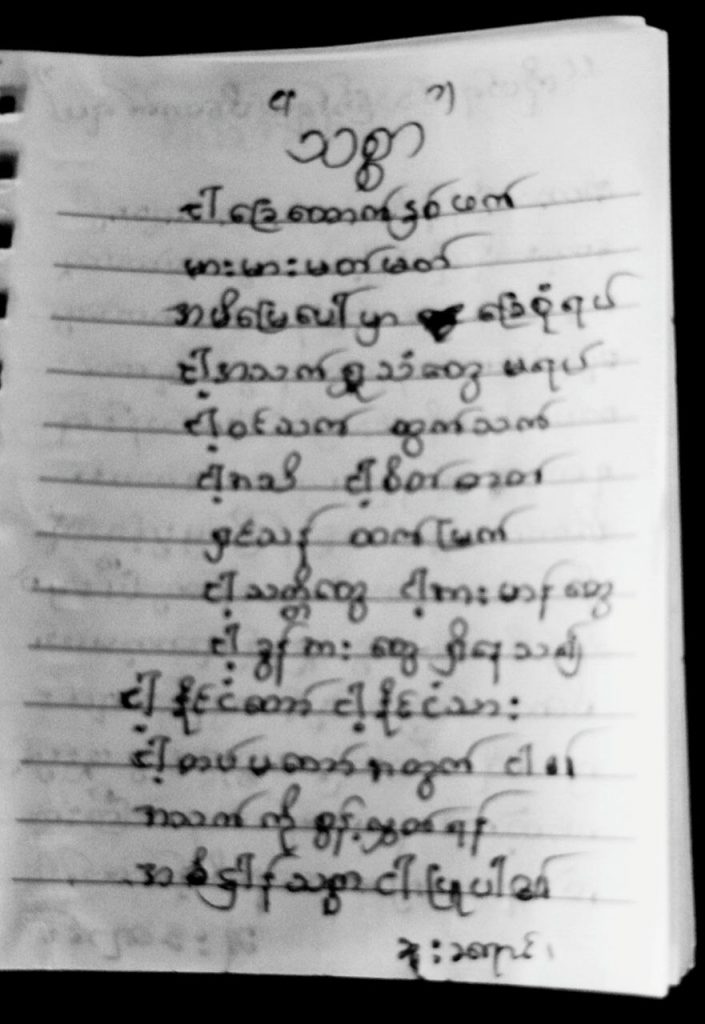 "သစ္စာ"
ငါ ခြေထောက်နှစ်ဖက်
မားမားမတ်မတ်
အမိမြေပေါ်မှာ ခြေစုံရပ်
ငါ့အသက်ရှူသံတွေ မရပ်
ငါ့ဝင်သက် ထွက်သက်
ငါ့ဘဝ ငါ့စိတ်ဓာတ်
ရှင်သန် ထက်မြက်
ငါ့သတ္တိတွေ ငါ့ကားမာန်တွေ
ငါ့ ခွန်အား တွေ ရှိနေသမျှ
ငါ့နိုင်ငံတော် ငါ့နိုင်ငံသား
ငါ့တပ်မတော်အတွက် ငါ၏
အသက်ကို စွန့်လွှတ်ရန်
အဓိဋ္ဌာန်သစ္စာ ငါပြုပါ၏